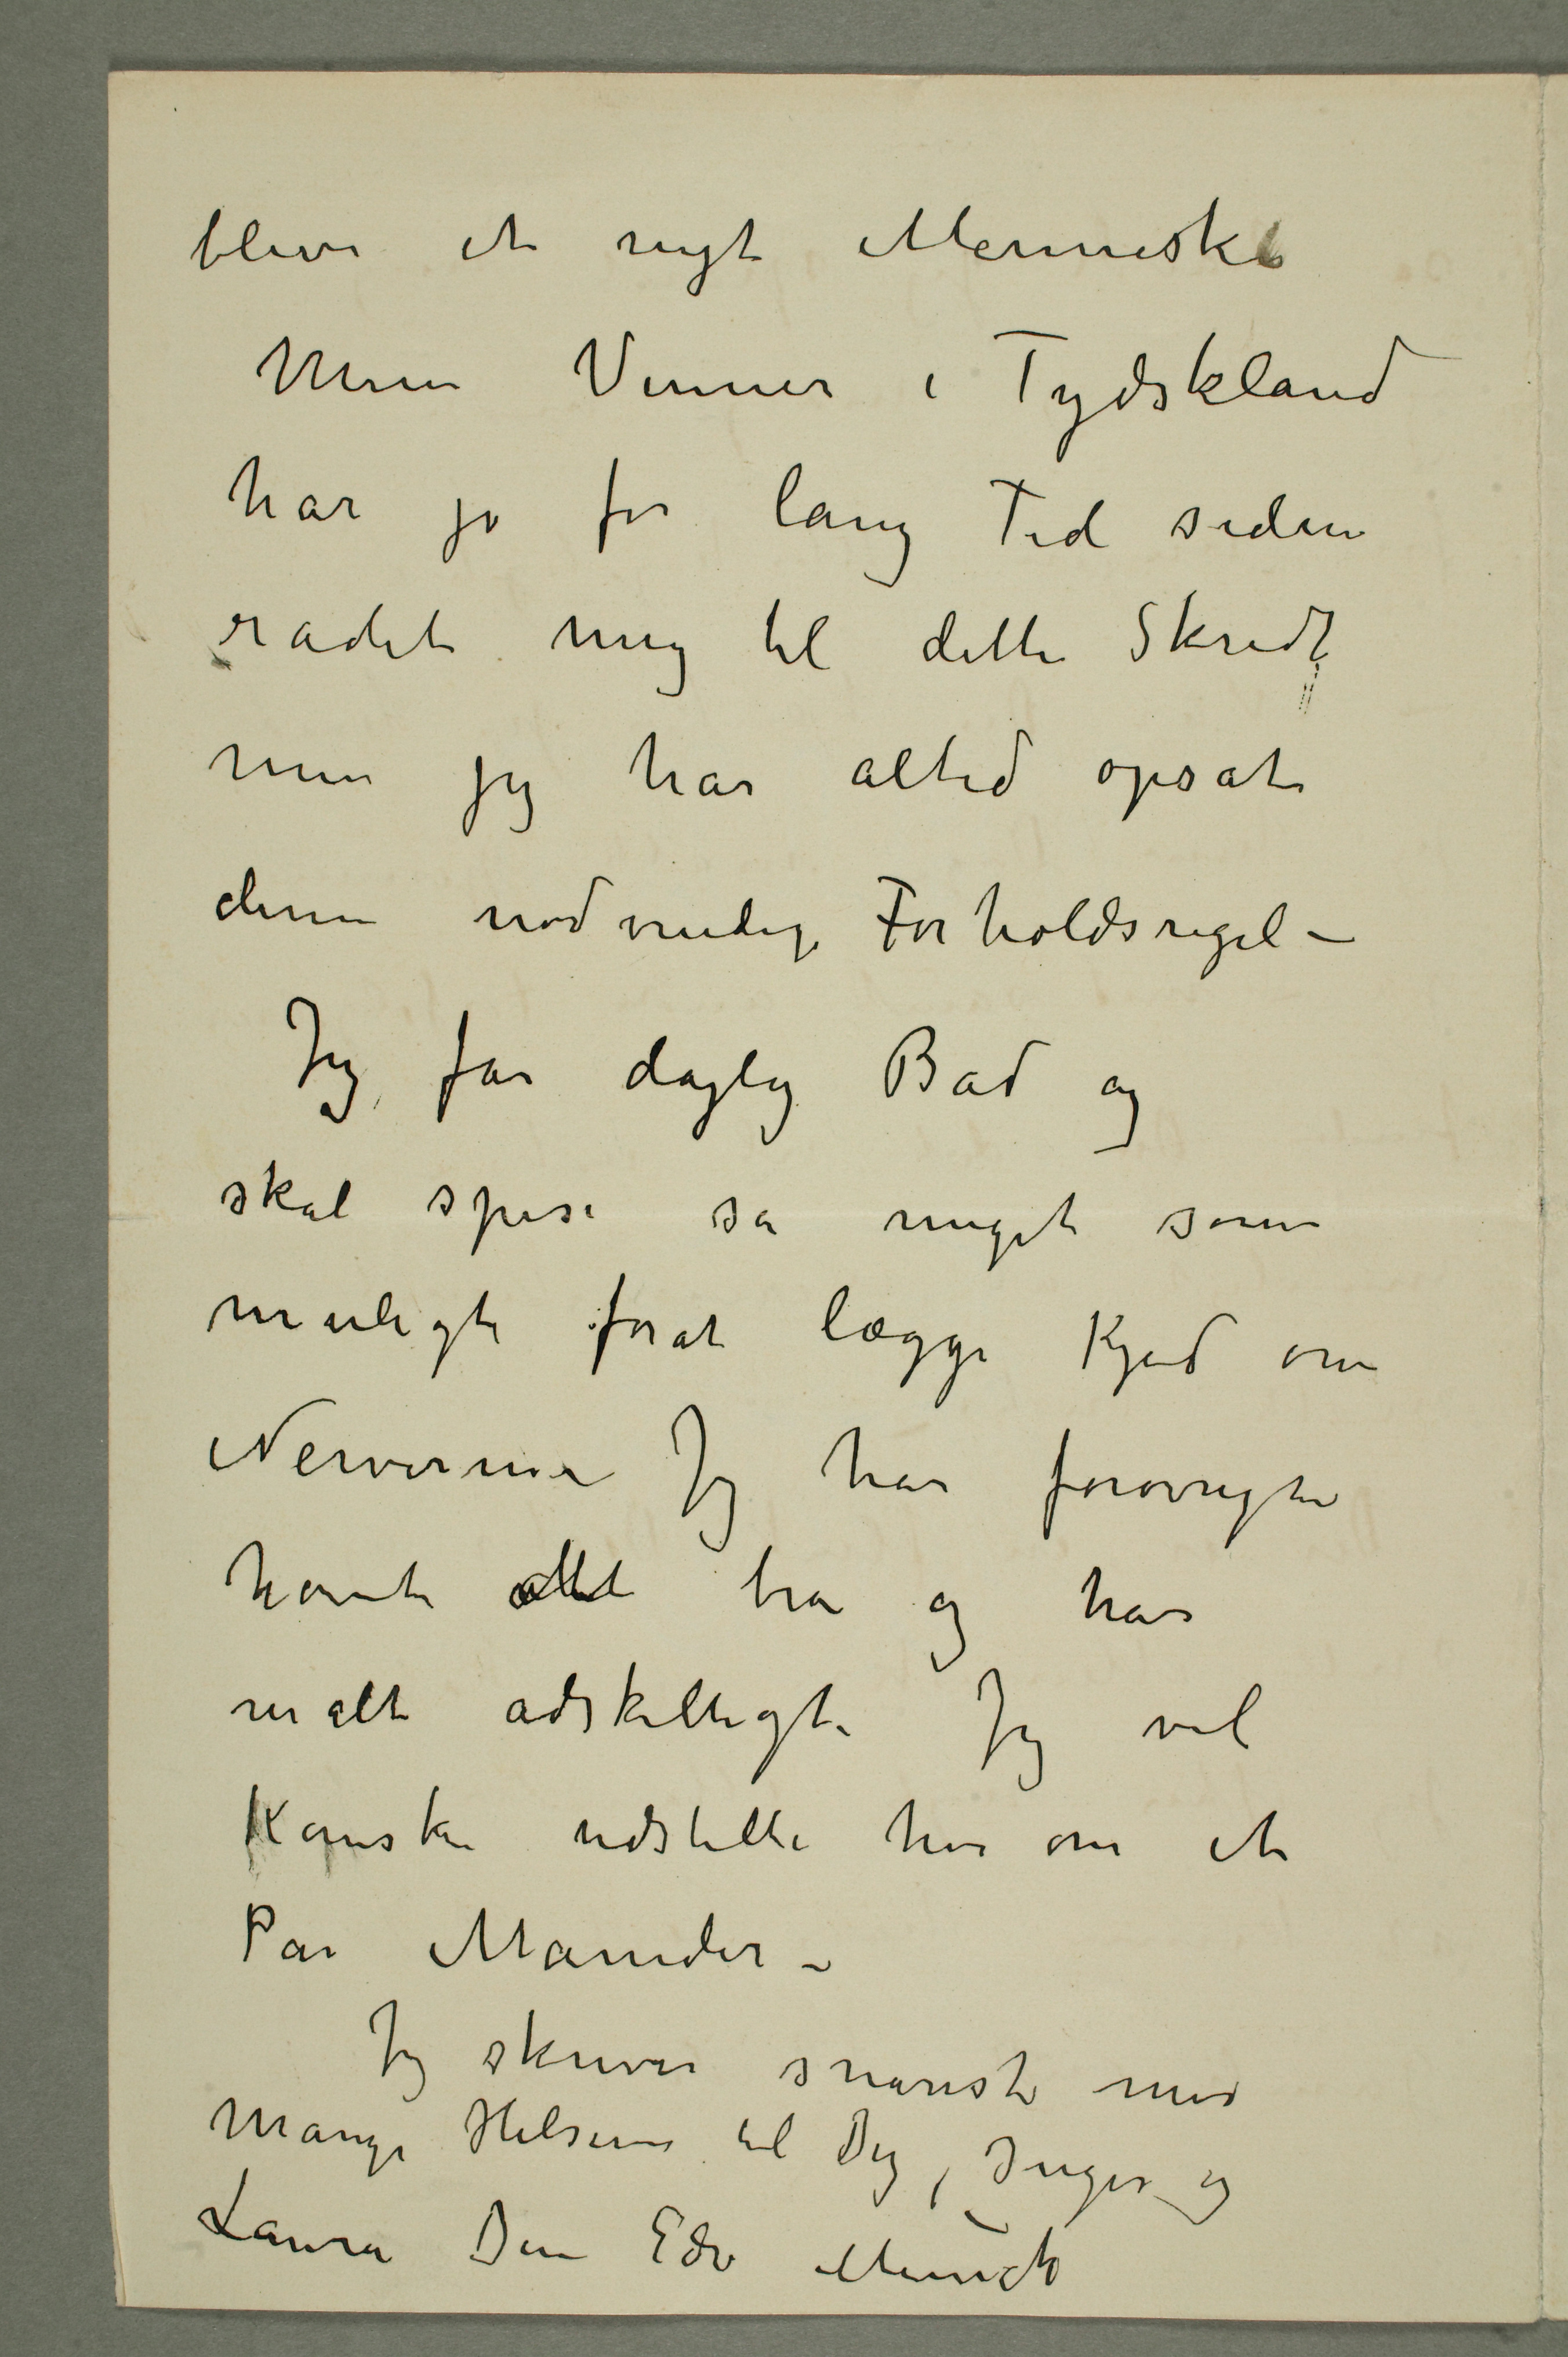 blive et nyt Menneske
Mine Venner i Tydskland
har jo for lang Tid siden
rådet mig til dette Skridt
men jeg har altid opsat
denne nødvendige Forholdsregel –
Jeg får daglig Bad og
skal spise så meget som
muligt forat lægge Kjød om
Nerverne Jeg har forøvrigt
havt alt bra og har
malt adskilligt. Jeg vil
kanske udstille her om et
Par Måneder –
Jeg skriver snarest med
mange Hilsener til Dig, Inger og
Laura Din Edv Munch